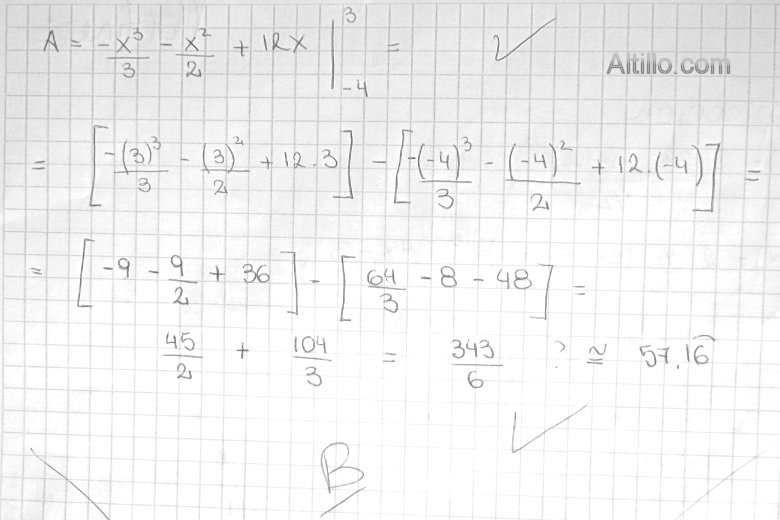 A = -x³/3 - x²/2 + 12x |₋₄³ =
Altillo.com
= [-(3)³/3 - (3)²/2 + 12.3] - [-(-4)³/3 - (-4)²/2 + 12.(-4)] =
= [-9 - 9/2 + 36] - [64/3 - 8 - 48] =
45/2 + 104/3 = 343/6 ? ≅ 57,16
B